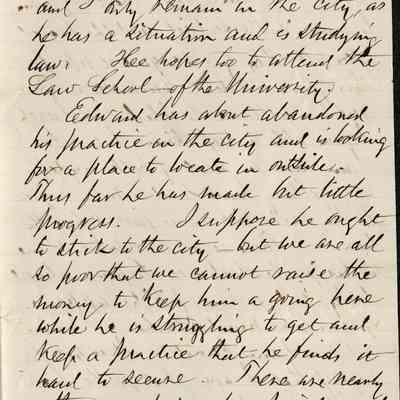 and I only remain in the city, as
he has a situation and is studying
law. Hee hopes too to attend the
Law School of the University.
Edward has about abandoned
his practice in the city and is looking
for a place to locate in outside.
Thus far he has made but little
progress. I suppose he ought
to stick to the city - but we are all
so poor that we cannot raise the
money to keep him a going here
while he is struggling to get and
keep a practice that he finds it
hard to secure. There are nearly